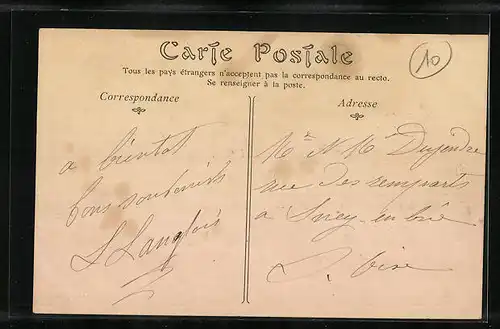 Carte Postale
10
Tous les pays étrangers n'acceptent pas la correspondance au recto.
Se renseigner à la poste.
Correspondance
a bientot
bons souvenirs
L Langlois
Adresse
Mr et Mme
rue des remparts
a en brie